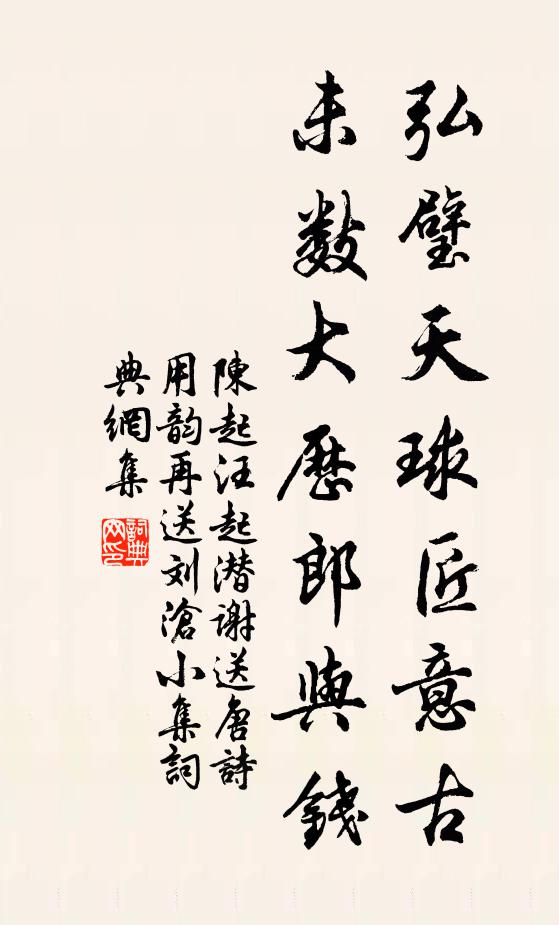 弘璧天球匠意古
未数大歷郎與錢
陳起汪起潜謝送唐詩
用韵再送刘滄小集詞
典網集
詞典網印